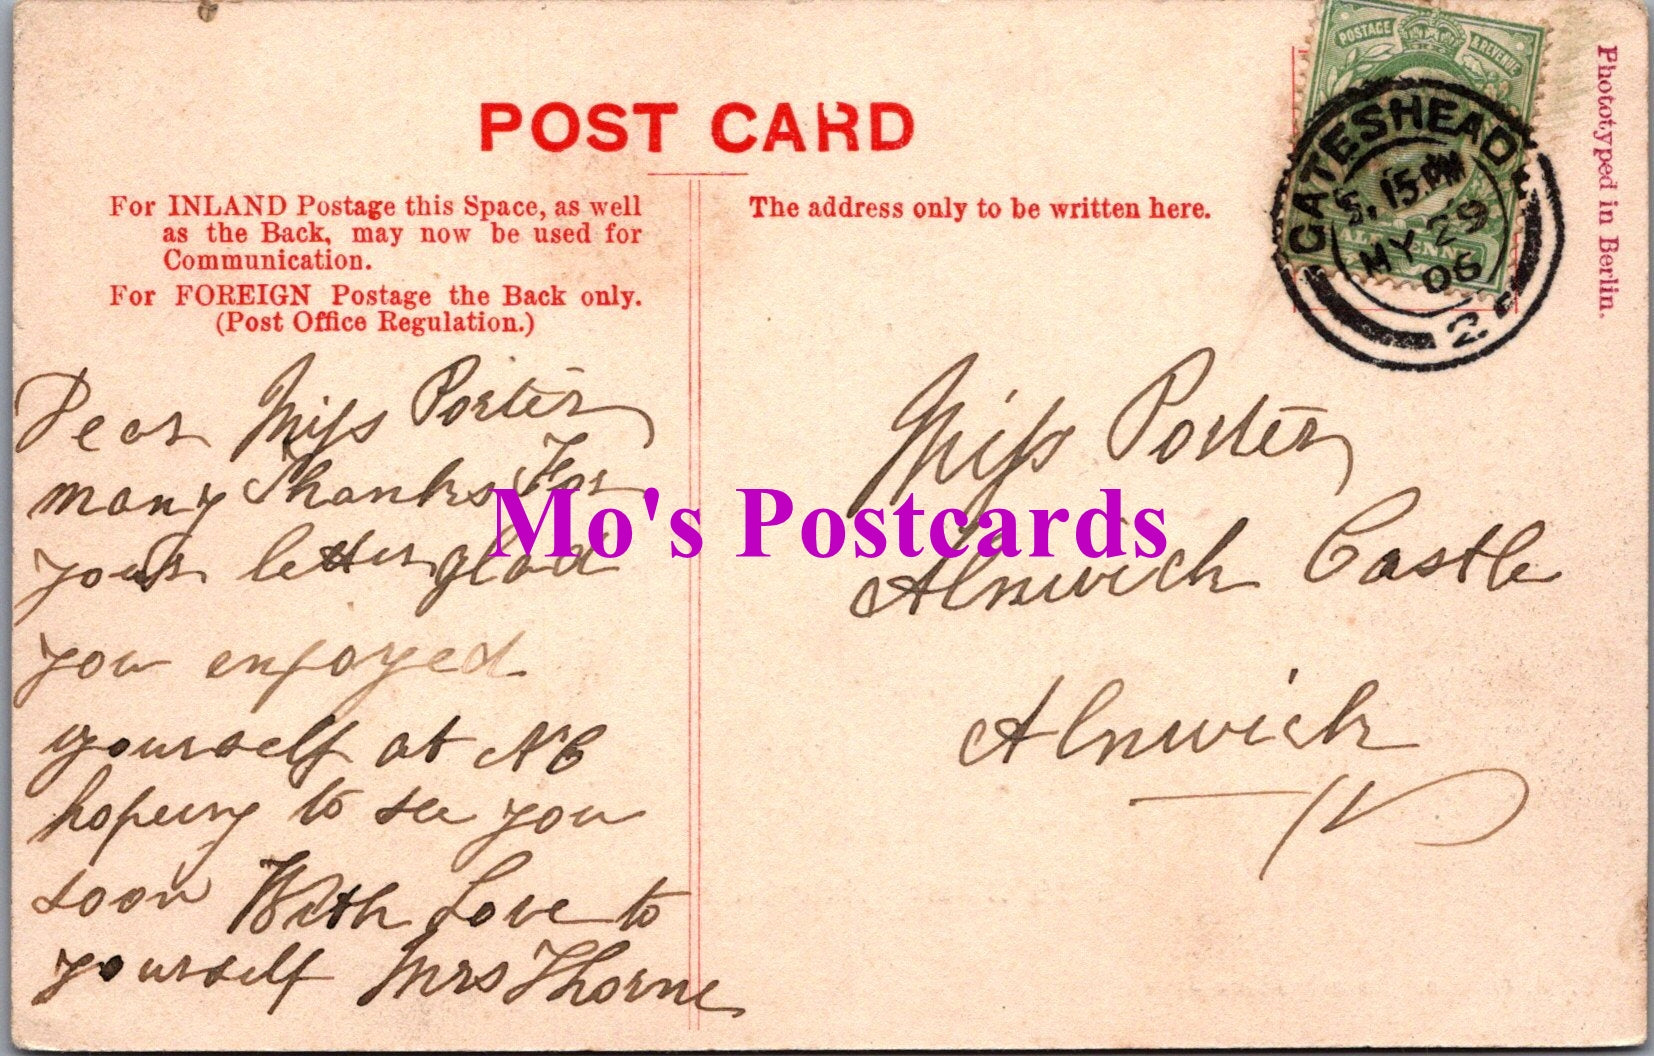 POST CARD
For INLAND Postage this Space, as well
as the Back, may now be used for
Communication.
For FOREIGN Postage the Back only.
(Post Office Regulation.)
The address only to be written here.
POSTAGE & REVENUE
GATESHEAD
5.15 PM
MY 29
06
2
Phototyped in Berlin.
Dear Miss Porter
many Thanks For
your letter glad
you enjoyed
yourself at NC
hoping to see you
soon With Love to
yourself Mrs Thorne
Miss Porter
Alnwick Castle
Alnwick
Mo's Postcards